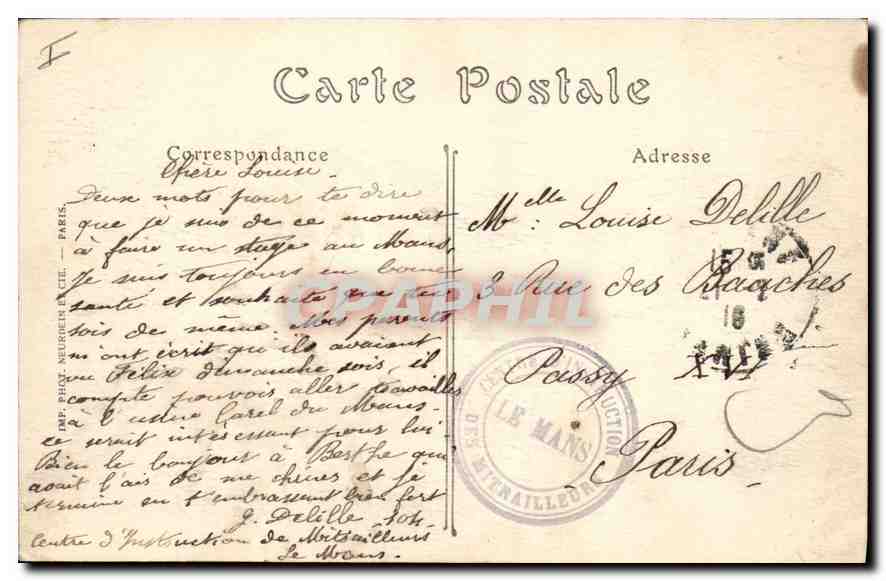 I
Carte Postale
Correspondance
Chère Louise
Deux mots pour te dire
que je suis de ce moment
à faire un stage au Mans,
Je suis toujours en bonne
santé et souhaite que tu
sois de même. Mes parents
m'ont écrit qu'ils avaient
vu Félix dimanche soir, il
compte pouvoir aller travailler
à l'usine Carel du Mans
ce serait intéressant pour lui
Bien le bonjour à Berthe qui
avait l'air de me
et je
termine en t'embrassant bien fort
J. Delille
Centre d'Instruction de Mitrailleurs
Le Mans.
IMP. PHOT. NEURDEIN ET CIE. — PARIS.
Adresse
Melle: Louise Delille
3 Rue des Baaches
Passy XVI
Paris
CENTRE D'INSTRUCTION
LE MANS
DES MITRAILLEURS
16
CPAPHIL